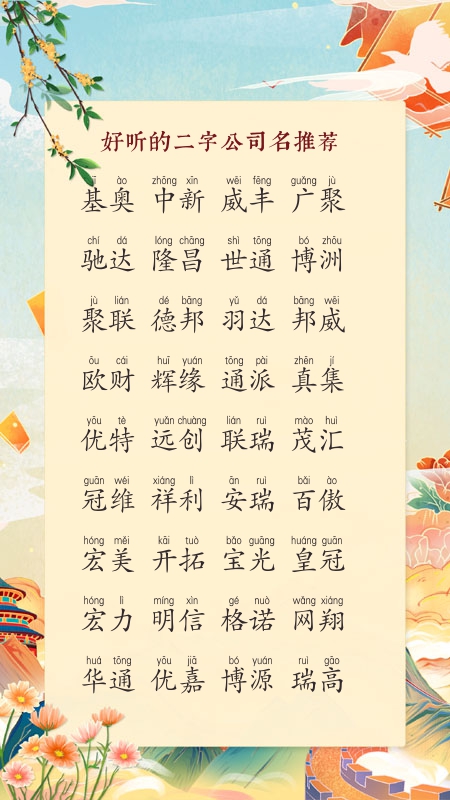 好听的二字公司名推荐
jī ào zhōng xīn wēi fēng guǎng jù
基奥 中新 威丰 广聚
chí dá lóng chāng shì tōng bó zhōu
驰达 隆昌 世通 博洲
jù lián dé bāng yǔ dá bāng wēi
聚联 德邦 羽达 邦威
ōu cái huī yuán tōng pài zhēn jí
欧财 辉缘 通派 真集
yōu tè yuǎn chuàng lián ruì mào huì
优特 远创 联瑞 茂汇
guān wéi xiáng lì ān ruì bǎi ào
冠维 祥利 安瑞 百傲
hóng měi kāi tuò bǎo guāng huáng guān
宏美 开拓 宝光 皇冠
hóng lì míng xìn gé nuò wǎng xiáng
宏力 明信 格诺 网翔
huá tōng yōu jiā bó yuán ruì gāo
华通 优嘉 博源 瑞高